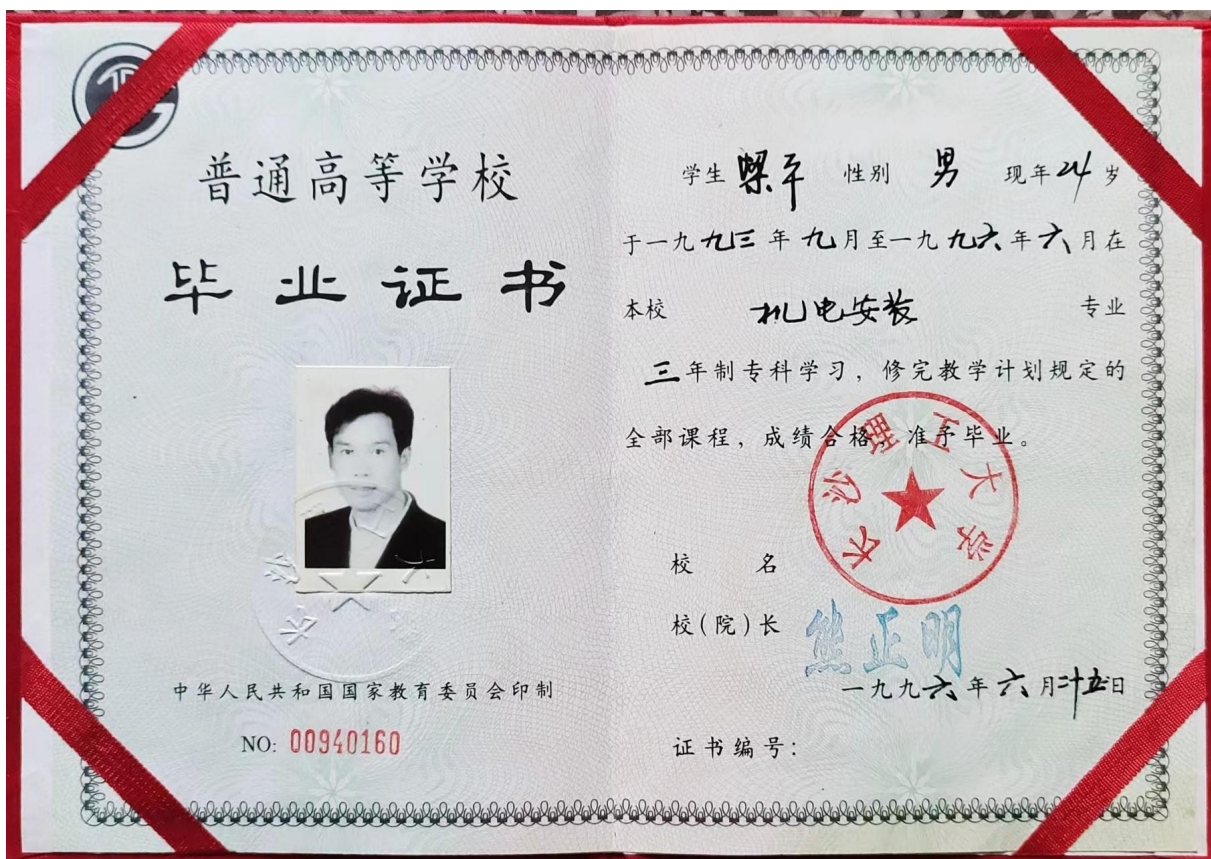 普通高等学校
毕业证书
中华人民共和国国家教育委员会印制
NO: 00940160
学生 梁平 性别 男 现年 24 岁
于一九九三年九月至一九九六年六月在
本校 机电安装 专业
三年制专科学习，修完教学计划规定的
全部课程，成绩合格，准予毕业。
长沙理工大学
校 名
校(院)长 熊正明
一九九六年六月二十五日
证书编号：